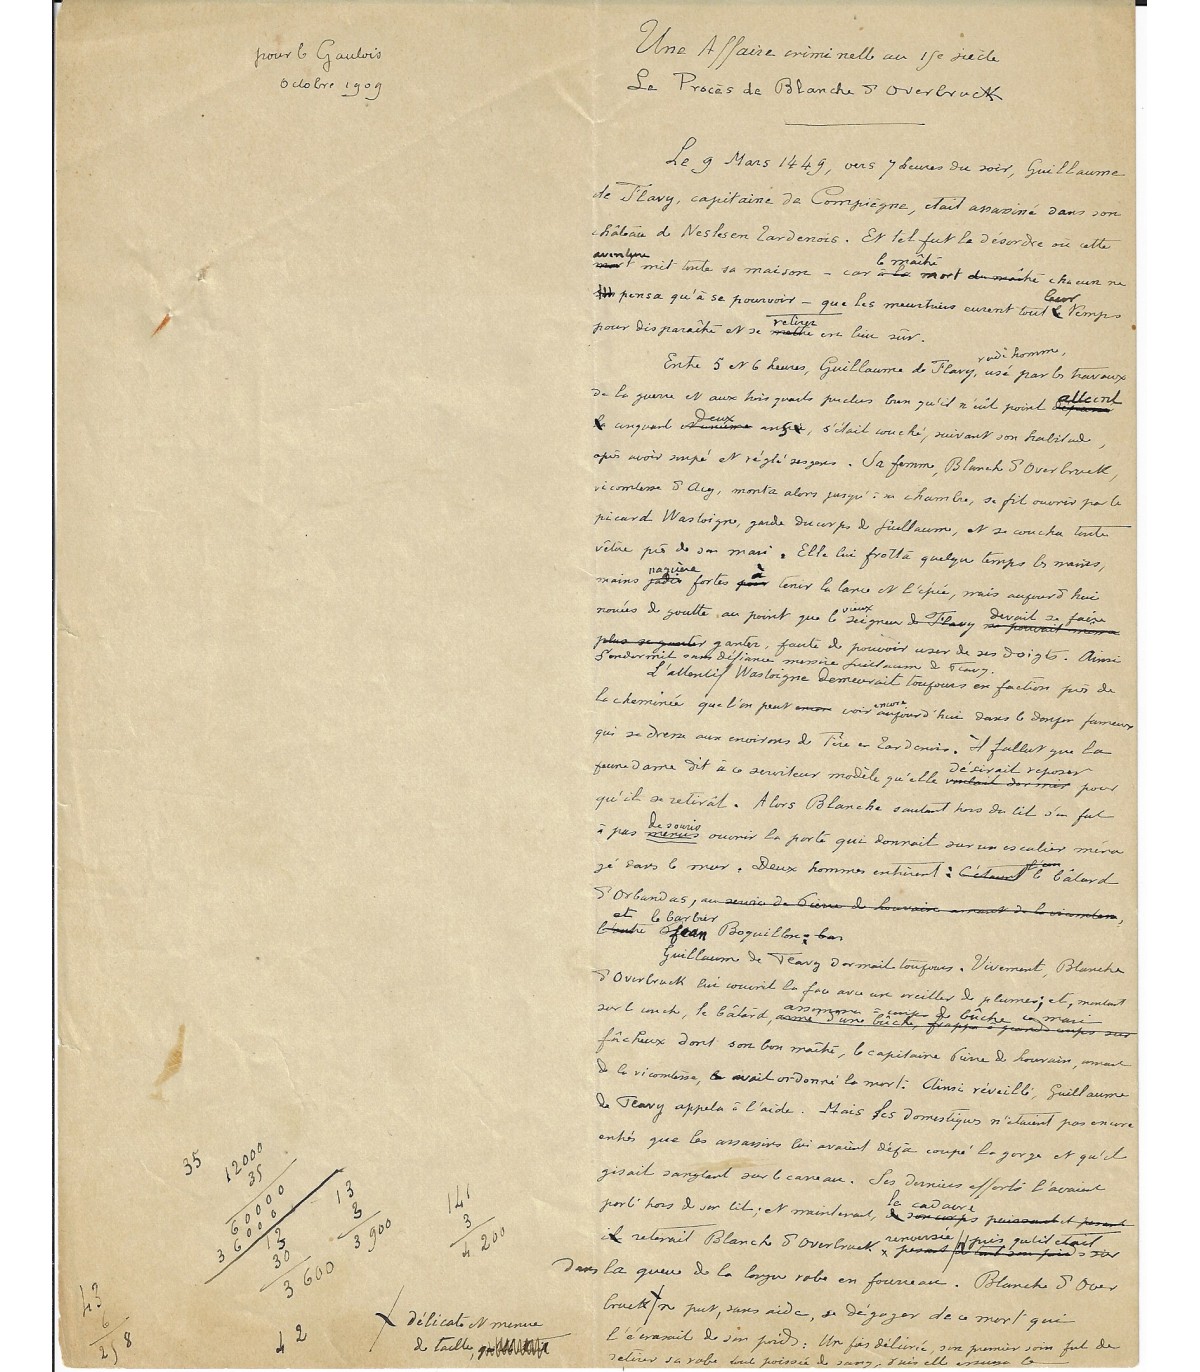 pour le Gaulois
Octobre 1909
Une Affaire criminelle au 15e siècle
Le Procès de Blanche d'Overbruck
Le 9 Mars 1449, vers 7 heures du soir, Guillaume
de Flavy, capitaine de Compiègne, était assassiné dans son
château de Nesles en Tardenois. Et tel fut le désordre où cette
aventure
mort mit toute sa maison – car à la mort du maître chacun ne
le maître
pensa qu'à se pourvoir – que les meurtriers eurent tout le temps
leur
pour disparaître et se mettre en lieu sûr.
retirer
Entre 5 et 6 heures, Guillaume de Flavy, usé par les travaux
rude homme,
de la guerre et aux trois quarts perclus bien qu'il n'eût point dépassé
atteint
la cinquant ans, s'était couché, suivant son habitude,
deux
après avoir soupé et réglé ses gens. Sa femme, Blanche d'Overbruck,
vicomtesse d'Acy, monta alors jusqu'à sa chambre, se fit ouvrir par le
picard Wastoigne, garde du corps de Guillaume, et se coucha toute
vêtue près de son mari. Elle lui frotta quelque temps les mains,
mains jadis fortes pour tenir la lance et l'épée, mais aujourd'hui
naguère à
nouées de goutte au point que le seigneur de Flavy se pouvait même
vieux devait se faire
plus se ganter ganter, faute de pouvoir user de ses doigts. Ainsi
s'endormit sans défiance messire Guillaume de Flavy.
L'attentif Wastoigne demeurait toujours en faction près de
la cheminée que l'on peut encore voir aujourd'hui dans le donjon fameux
encore
qui se dresse aux environs de Fère en Tardenois. Il fallut que la
jeune dame dit à ce serviteur modèle qu'elle voulait dormir pour
désirait reposer
qu'il se retirât. Alors Blanche sautant hors du lit s'en fut
à pas menus ouvrir la porte qui donnait sur un escalier ména
de souris
gé dans le mur. Deux hommes entrèrent : c'étaient le bâtard
l'un
d'Orbandas, au service de Pierre de Louvain amant de la vicomtesse,
et le barbier
l'autre Jean Boquillon
Guillaume de Flavy dormait toujours. Vivement, Blanche
d'Overbruck lui couvrit la face avec un oreiller de plumes; et, montant
sur la couche, le bâtard, armé d'une bûche, frappa à grands coups sur
assomma à coups de bûche ce mari
fâcheux dont son bon maître, le capitaine Pierre de Louvain, amant
de la vicomtesse, avait ordonné la mort. Ainsi réveillé, Guillaume
de Flavy appela à l'aide. Mais ses domestiques n'étaient pas encore
entrés que les assassins lui avaient déjà coupé la gorge et qu'il
gisait sanglant sur le carreau. Ses derniers efforts l'avaient
porté hors de son lit; et maintenant, de son corps puissant et pesant
le cadavre
il retenait Blanche d'Overbruck pesant de tout son poids sur
renversée puis qu'il était
dans la queue de la longue robe en fourreau. Blanche d'Over
bruck ne put, sans aide, se dégager de ce mort qui
l'écrasait de son poids : Une fois délivrée, son premier soin fut de
retirer sa robe tout poissée de sang, puis elle
délicate et menue
de taille,
35
12000
35
60000
36000
12
30
3600
13
3
3900
141
3
4200
43
6
258
42